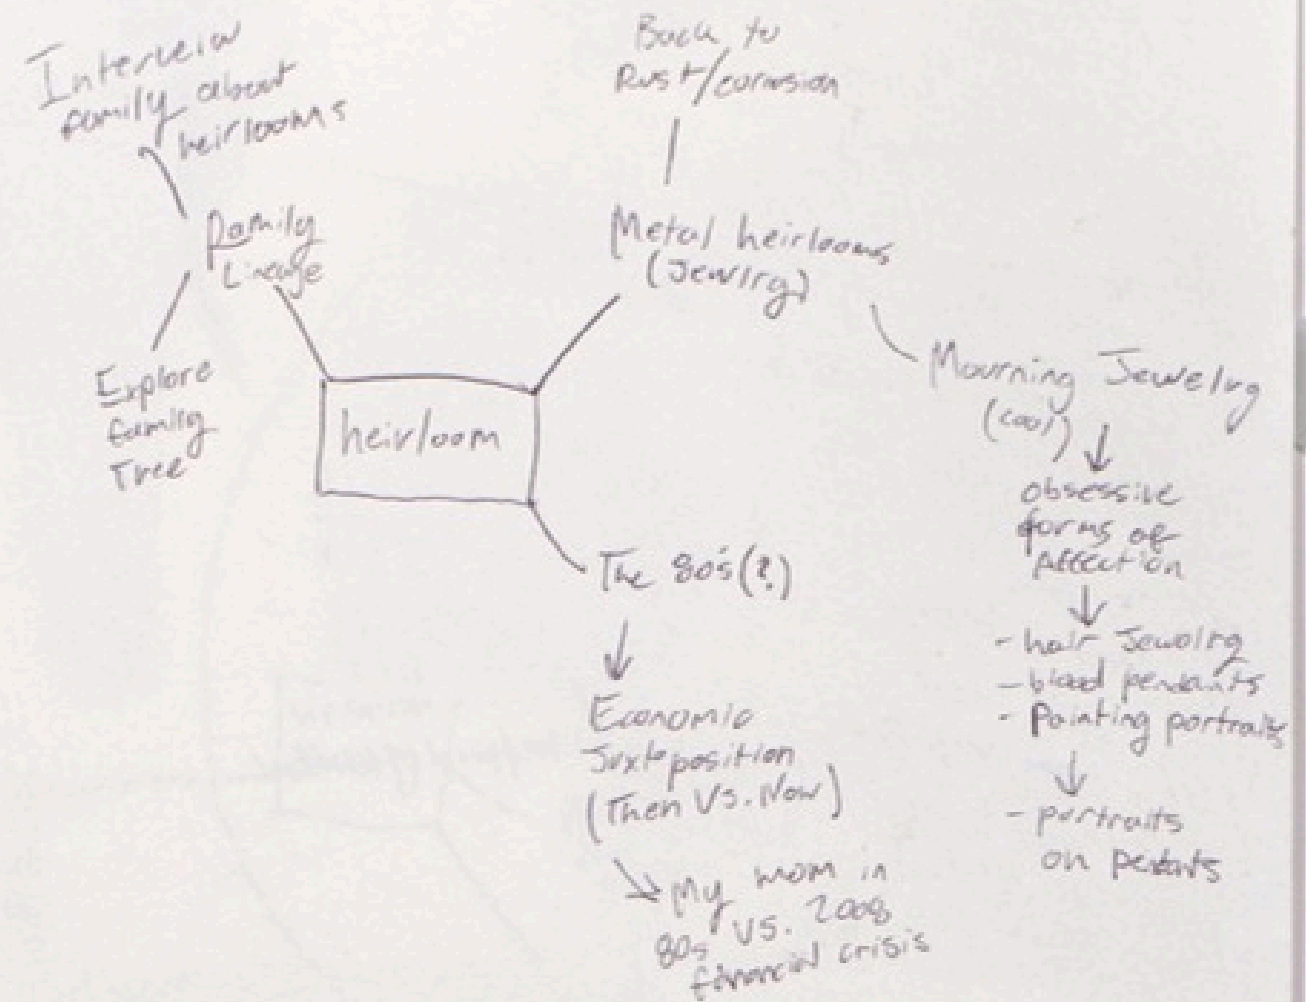 Interveiw
family about
heirlooms
Family
Lineage
Explore
family
Tree
heirloom
Back to
Rust/corrosion
Metal heirlooms
(Jewlry)
Mourning Jewelry
(cool)
obsessive
forms of
Affection
- hair Jewelry
- blood pendants
- Painting portraits
- portraits
on
The 80's (?)
Economic
Juxtaposition
(Then Vs. Now)
My mom in
80s vs. 2008
financial crisis